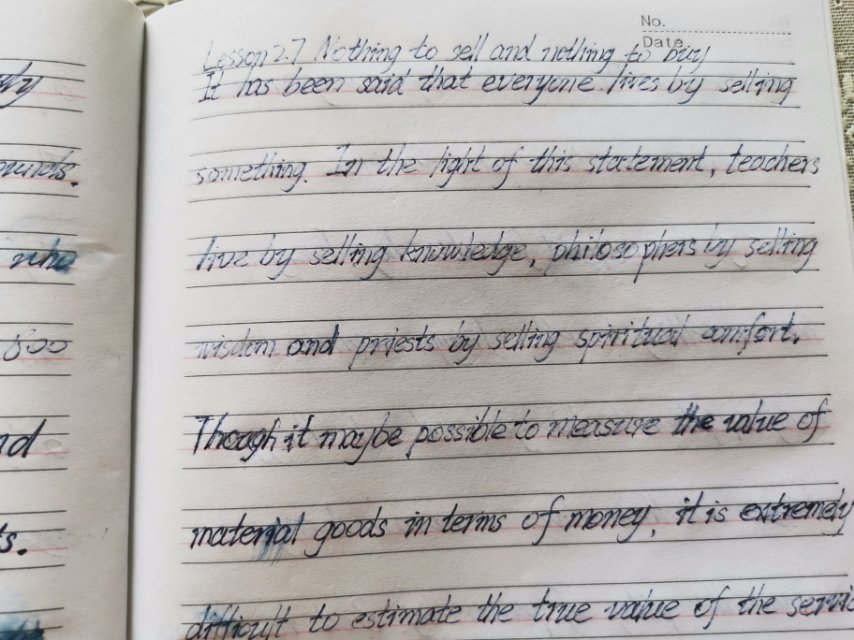 No.
Date
Lesson 27 Nothing to sell and nothing to buy
It has been said that everyone lives by selling
something. In the light of this statement, teachers
live by selling knowledge, philosophers by selling
wisdom and priests by selling spiritual comfort.
Though it maybe possible to measure the value of
material goods in terms of money, it is extremely
difficult to estimate the true value of the servic
who
800
nd
ts.